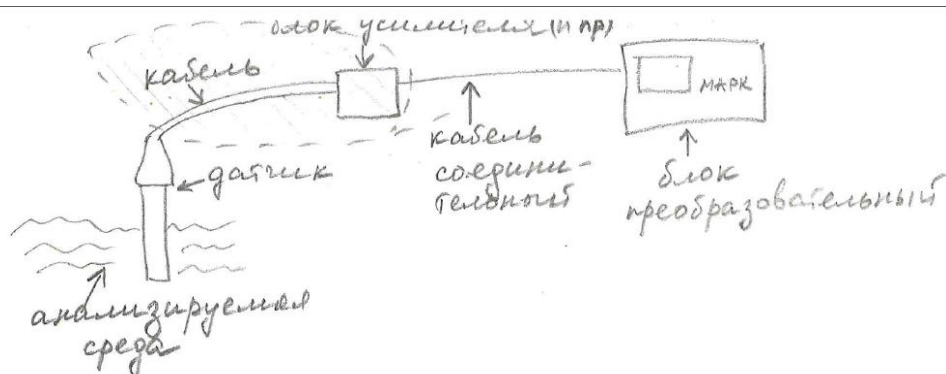 блок усилителя (п пр)
кабель
МАРК
датчик
кабель
соедини-
тельный
блок
преобразовательный
анализируемая
среда